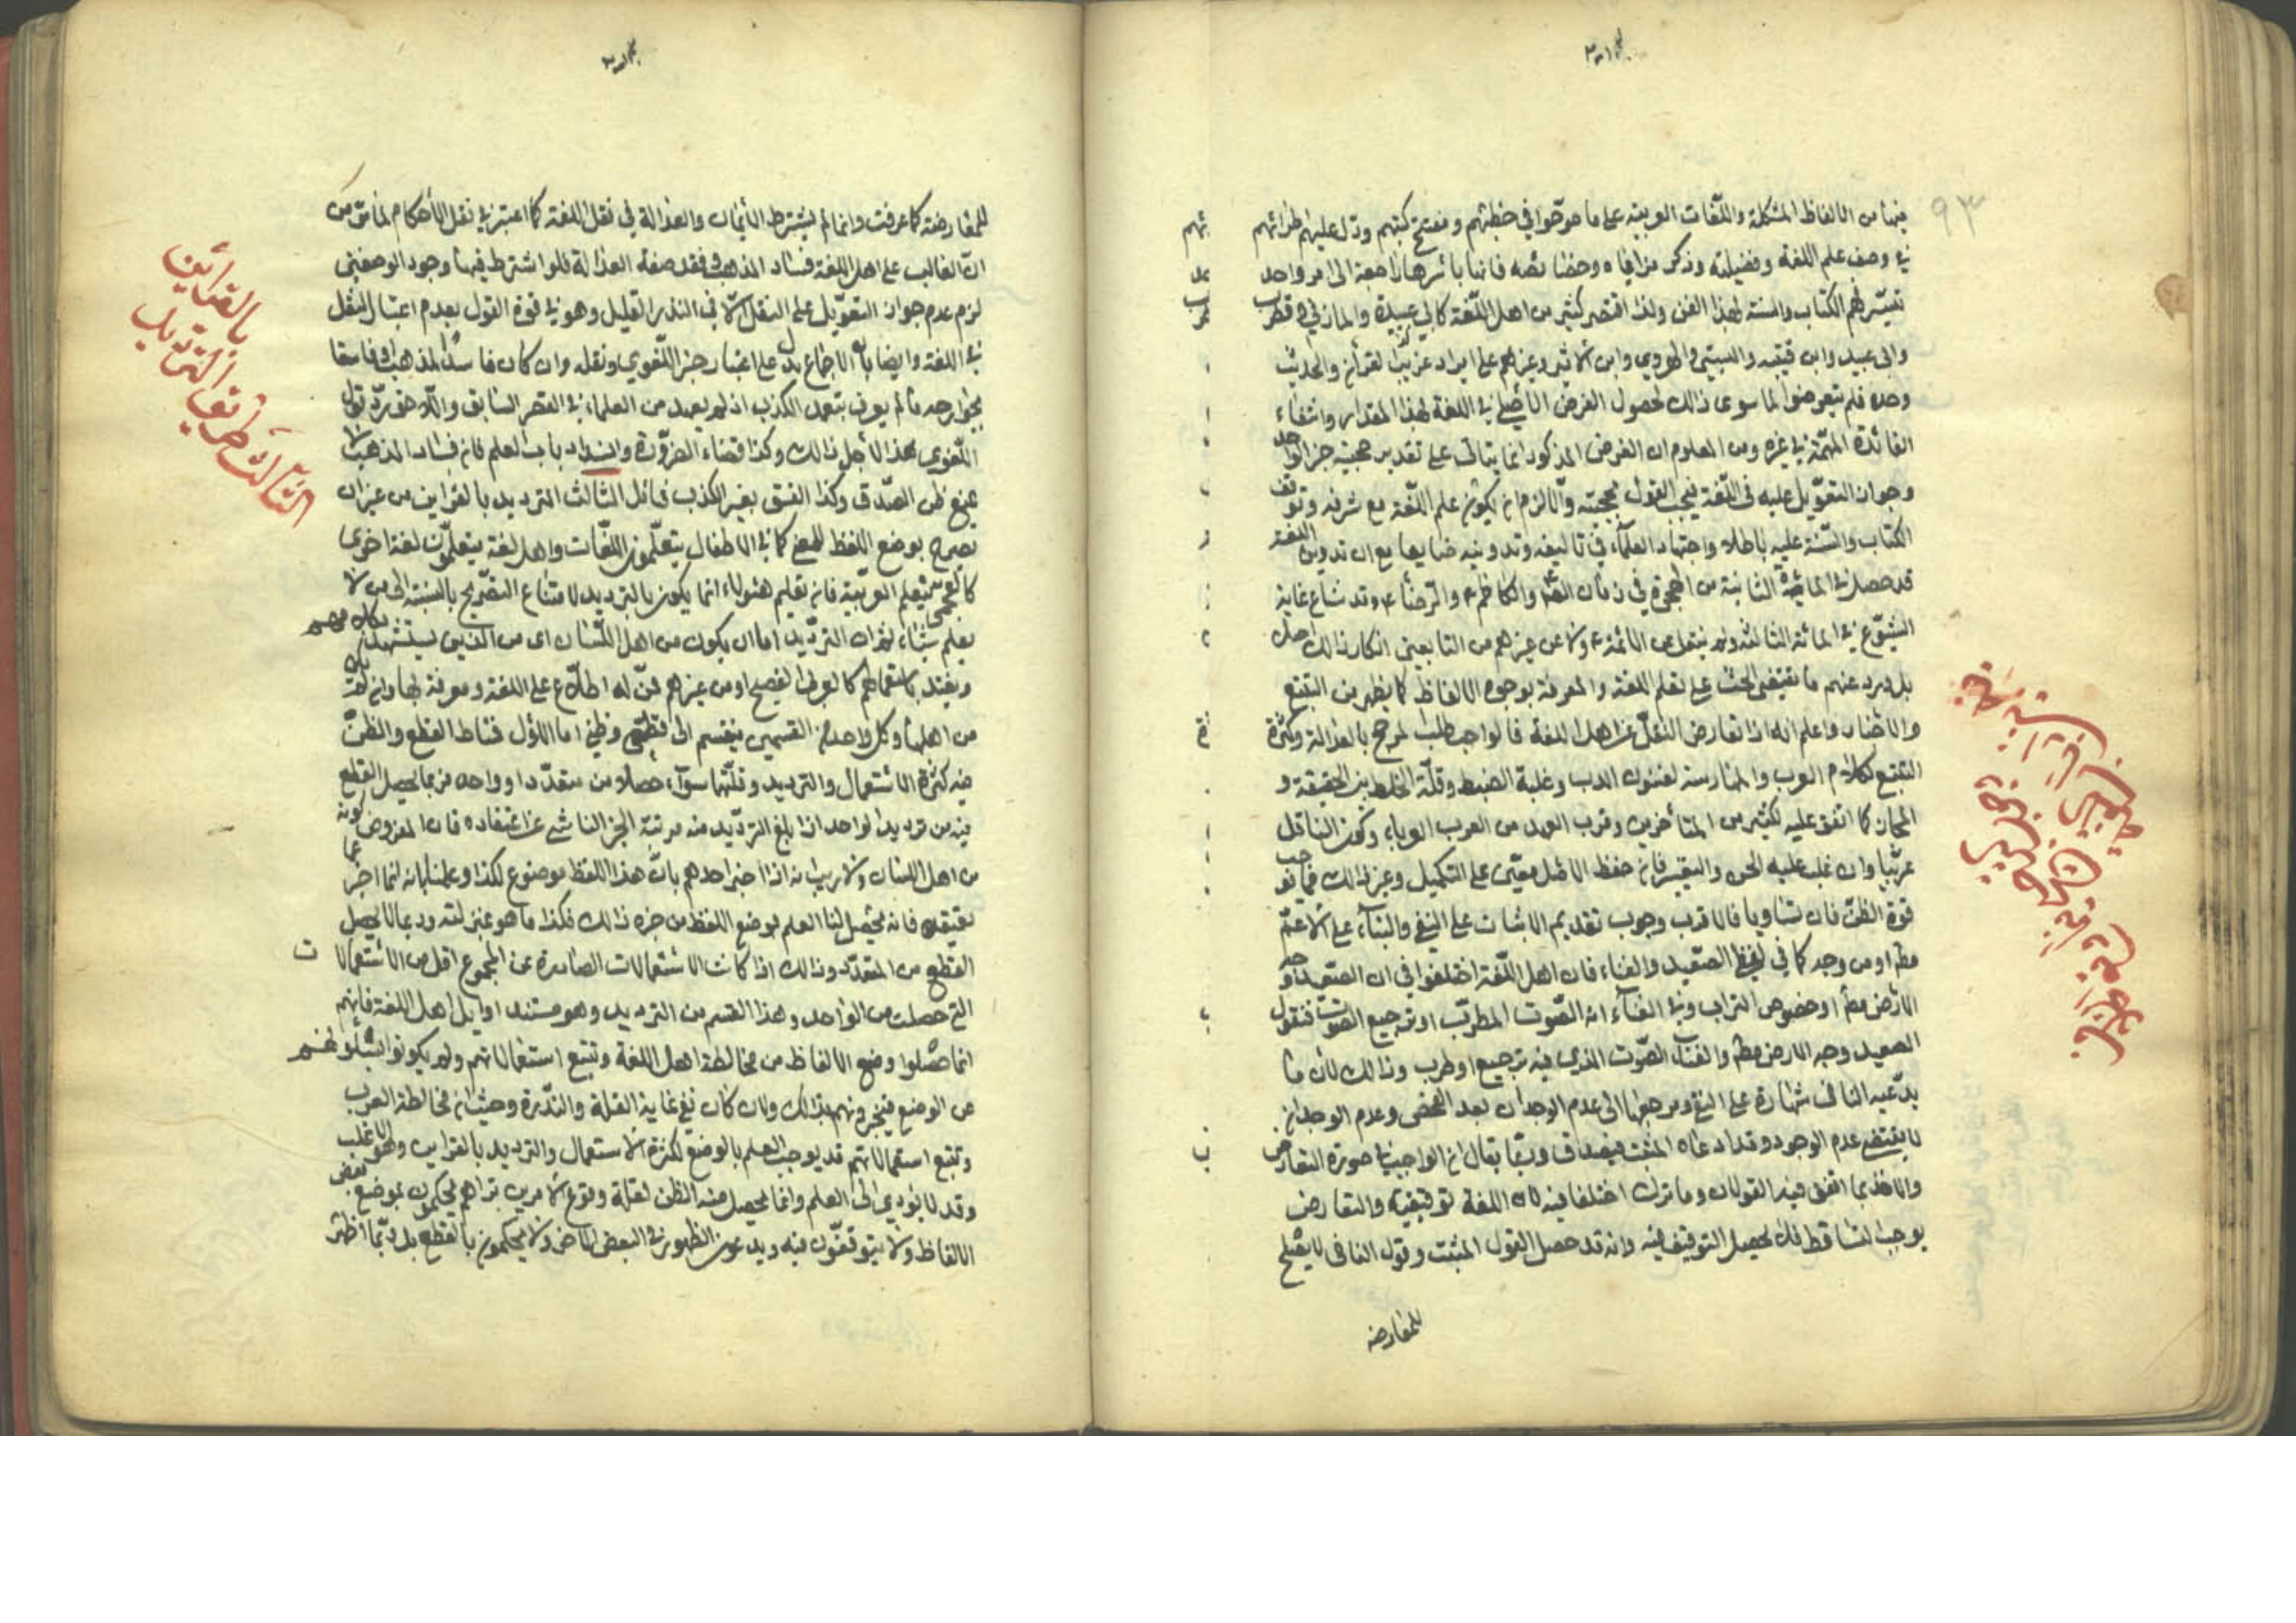 فيهما من الالفاظ المشكلة واللغات العربية على ما صرحوا في خطبهم ومفتتح كتبهم ودل عليهم طرائهم
في وصف علم اللغة وفضيلته وذكر مزاياه وخصائصه فانها باسرها راجعة الى امر واحد
تيسّرهم الكتاب والسنة لهذا الفن ولذا اقتصر كثير من اهل اللغة كابي عبيدة والمازني وقطرب
وابى عبيد وابن قتيبه والبستي والهروي وابن الاثير وغيرهم على ايراد غريب القرآن والحديث
وحده فلم يتعرضوا لما سوى ذالك لحصول الغرض الأصلي في اللغة بهذا المقدار وانتفاء
الفائدة المهمّة في غيره ومن المعلوم ان الغرض المذكور انما يتاتى على تقدير حجية خبر الواحد
وجواز التعويل عليه في اللغة فيجب القول بحجيته والّا لزم ان يكون علم اللغة مع شرفه وتوقف
الكتاب والسّنة عليه باطلا واجتهاد العلماء في تاليفه وتدوينه ضايعا مع ان تدوين اللغة
قد حصل في المائة الثانية من الهجرة في زمان والكاظم والرضا ع وقد شاع غاية
الشيوع في المائة الثالثة ولم ينقل عن الائمة ع ولا عن غيرهم من التابعين انكار ذالك
بل ورد عنهم ما يقتضي الحث على تعلم اللغة والمعرفة بوجوه الالفاظ كما يظهر من التتبع
واعلم انه اذا تعارض النقل عن اهل اللغة فالواجب طلب المرجح بالعدالة وكثرة
التتبع لكلام العرب والممارسة لفنون الادب وغلبة الضبط وقلّة الخلط بين الحقيقة و
المجاز كما اتفق عليه لكثير من المتأخرين وقرب العهد من العرب العرباء وكون الناقل
عربيّا وان غلب عليه فان حفظ الاصل معيّن على التكميل وغير ذالك فما
قوة الظن فان تساويا فالاقرب وجوب تقديم الاثبات على النفي والبناء على الاعمّ
مطم او من وجه كما في لفظ الصّعيد والغناء فان اهل اللّغة اختلفوا في ان الصّعيد وجه
الارض مطم او خصوص التراب وفي الغناء انه الصّوت المطرّب او ترجيع الصّوت فنقول
الصعيد وجه الارض مطم والغناء الصّوت الذي فيه ترجيع او طرب وذالك لأن ما
يدّعيه النافى شهادة على النفي ومرجعها الى عدم الوجدان بعد الفحص وعدم الوجدان
لا يقتضي عدم الوجود وقد ادعاه المثبت فيصدق وربّما يقال ان الواجب في صورة التعارض
والاخذ بما اتفق فيه القولان وما ترك اختلفا فيه لان اللغة توقيفية والتعارض
يوجب التساقط فلا يحصل التوقيف فيه وانه قد حصل القول المثبت وقول النافى لا يصلح
للمعارضه
للمعارضة كما عرفت وانما لم يشترط الأيمان والعدالة في نقل اللغة كما اعتبر في نقل الأحكام لما مرّ من
انّ الغالب على اهل اللغة فساد المذهب وفقد صفة العدالة فلو اشترط فيهما وجود الوصفين
لزم عدم جواز التعويل على النقل الّا في النادر القليل وهو في قوة القول بعدم اعتبار النقل
في اللغة وايضا بان الاجماع دل على اعتبار خبر اللّغوي ونقله وان كان فاسد المذهب او فاسقا
بجوارحه ما لم يعرف بتعمد الكذب اذ لم يعهد من العلماء في العصر السابق واللاحق ردّ قول
اللّغوي لأجل ذالك وكذا قضاء الضرّورة وانسداد باب العلم فان فساد المذهب لا
يمنع ظن الصّدق وكذا الفسق بغير الكذب الثالث الترديد بالقراين من غير ان
يصرح بوضع اللفظ للمعنى كما في الاطفال يتعلّمون اللّغات واهل لغة يتعلمون لغة اخرى
كالعجمي يتعلم العربّية فان تعليم هئولاء انما يكون بالترديد لامتناع التصريح بالنسبة الى من لا
يعلم شيئا ثم ان الترديد اما ان يكون من اهل اللّسان اى من الذين يستشهد بكلامهم
ويعتد باستعمالهم كالعرب الفصيح او من غيرهم ممّن له اطلاع على اللغة ومعرفة بها وان لم يكن
من اهلها وكل واحد من القسمين ينقسم الى قطعي وظني اما الاول فمناط القطع والظنّ
فيه كثرة الاستعمال والترديد وقلّتهما سواء حصلا من متعدد او واحد فربما يحصل القطع
فيه من ترديد الواحد اذا بلغ الترديد منه مرتبة الجزم الناشي عن اعتقاده فان المفروض كونه
من اهل اللسان ولا ريب انه اذا اخبر احدهم بانّ هذا اللفظ موضوع لكذا وعلمنا بانه انما اخبر عما
يعتقده فانه يحصل لنا العلم بوضع اللفظ من خبره ذالك فكذا ما هو بمنزلته وربما لا يحصل
القطع من المتعدّد وذالك اذا كانت الاستعمالات الصادرة عن المجموع اقل من الاستعمالات
التي حصلت من الواحد وهذا القسم من الترديد وهو مستند اوايل اهل اللغة فانهم
انما حصّلوا وضع الالفاظ من مخالطة اهل اللغة وتتبع استعمالاتهم ولم يكونوا يسئلونهم
عن الوضع فيخبرونهم بذالك وان كان ففي غاية القلة والنّدرة وحيث ان مخالطة العرب
وتتبع استعمالاتهم قد يوجب العلم بالوضع لكثرة الاستعمال والترديد بالقراين وهو الاغلب
وقد لا يؤدي الى العلم وانما يحصل منه الظن لقلة وقوع الامرين تراهم يحكمون بموضع بعض
الالفاظ ولا يتوقفون فيه ويدعون الظهور في البعض الاخر ولا يحكمون بالقطع بل ربّما اظهر
الثالث طريق الترديد
بالقرائن